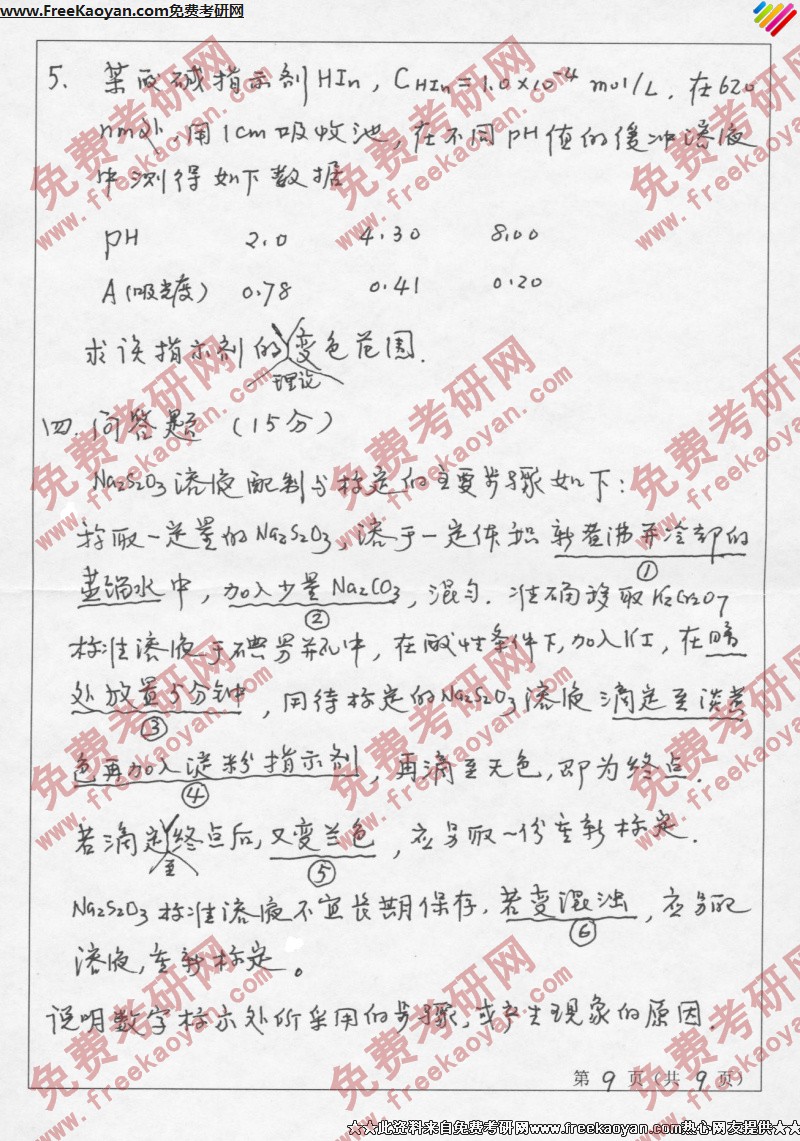 www.FreeKaoyan.com免费考研网
5. 某酸碱指示剂HIn, CHIn=1.0×10⁻⁴ mol/L. 在620
nm处,用1cm吸收池,在不同pH值的缓冲溶液
中测得如下数据
pH 2.0 4.30 8.00
A(吸光度) 0.78 0.41 0.20
求该指示剂的理论变色范围.
四.问答题 (15分)
Na2S2O3溶液配制与标定的主要步骤如下:
称取一定量的Na2S2O3,溶于一定体积新煮沸并冷却的
①
蒸馏水中,加入少量Na2CO3,混匀.准确移取K2Cr2O7
②
标准溶液于碘量瓶中,在酸性条件下,加入KI,在暗
处放置5分钟,用待标定的Na2S2O3溶液滴定至淡黄
③
色再加入淀粉指示剂,再滴至无色,即为终点.
④
若滴定至终点后,又变兰色,应另取一份重新标定.
⑤
Na2S2O3标准溶液不宜长期保存,若变混浊,应另配
⑥
溶液,重新标定。
说明数字标示处所采用的步骤,或产生现象的原因.
第 9 页(共 9 页)
★★此资料来自免费考研网www.freekaoyan.com热心网友提供★★
免费考研网
www.freekaoyan.com